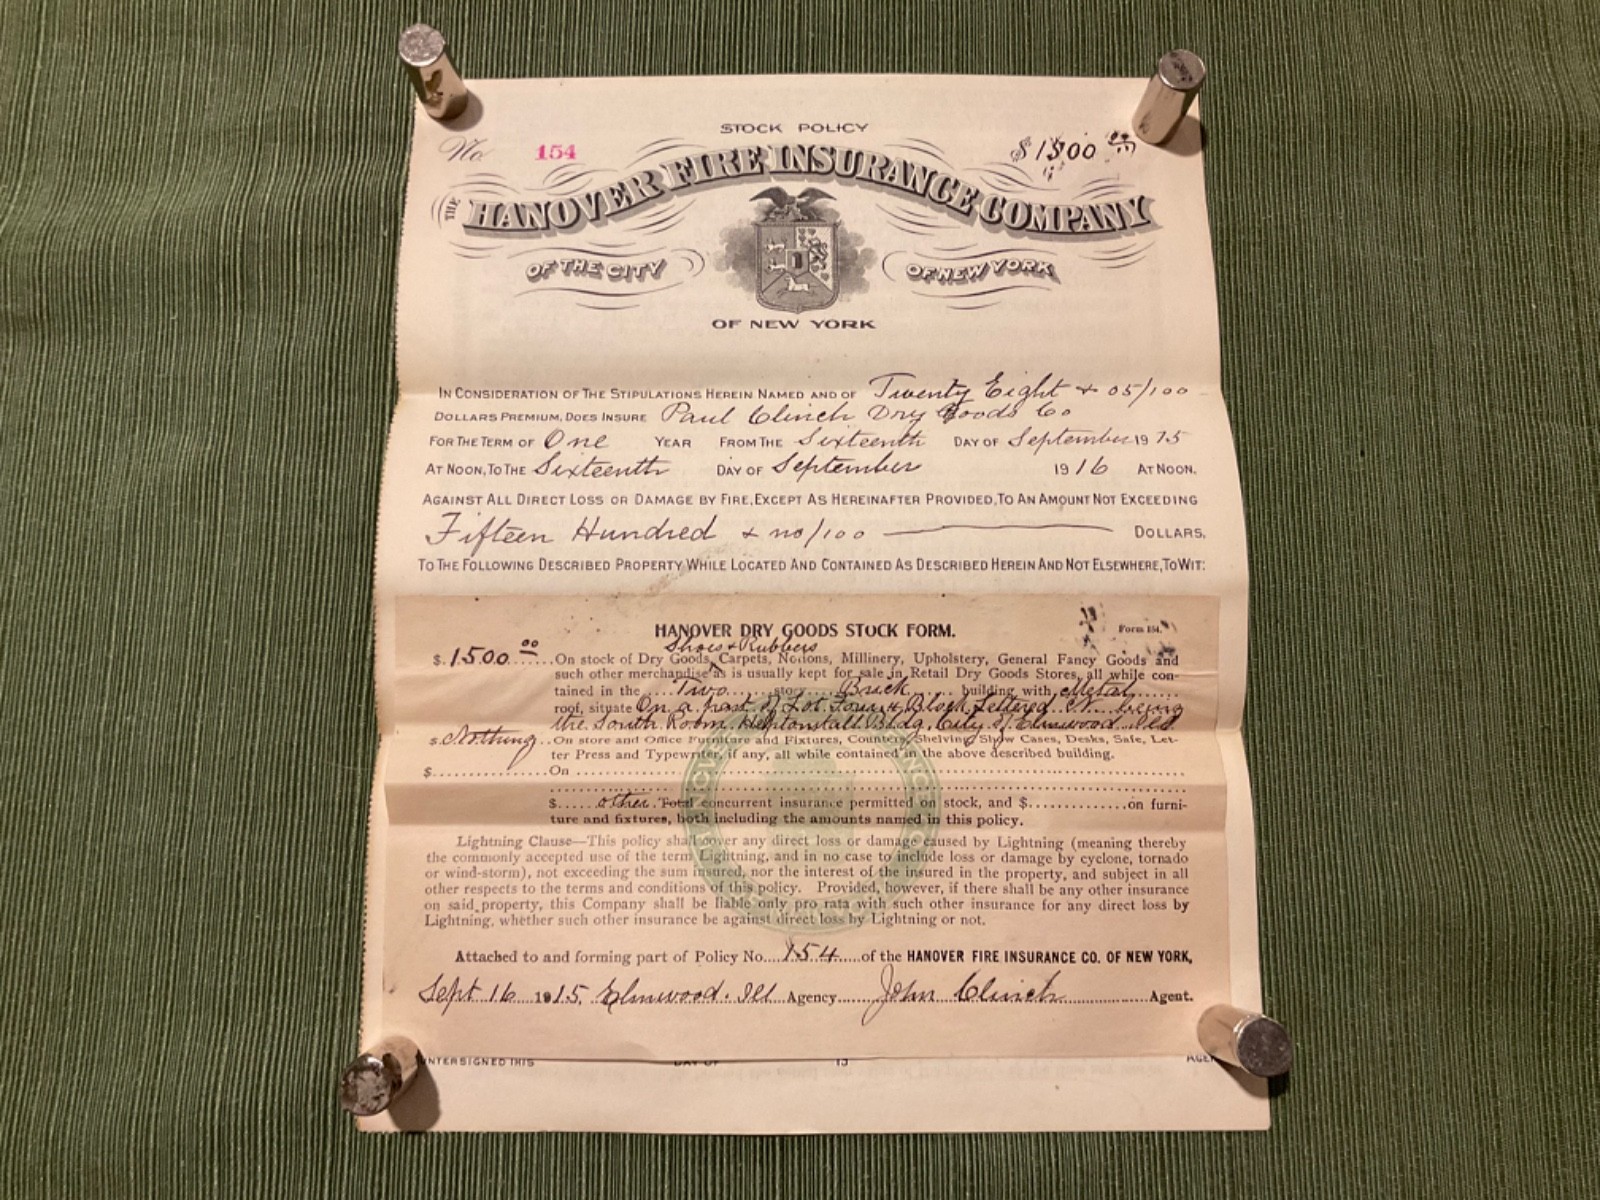 STOCK POLICY
No 154 $1500 00
THE HANOVER FIRE INSURANCE COMPANY
OF THE CITY OF NEW YORK
OF NEW YORK
IN CONSIDERATION OF THE STIPULATIONS HEREIN NAMED AND OF Twenty Eight + 05/100
DOLLARS PREMIUM, DOES INSURE Paul Clinch Dry Goods Co
FOR THE TERM OF One YEAR FROM THE Sixteenth DAY OF September 1915
AT NOON, TO THE Sixteenth DAY OF September 1916 AT NOON.
AGAINST ALL DIRECT LOSS OR DAMAGE BY FIRE, EXCEPT AS HEREINAFTER PROVIDED, TO AN AMOUNT NOT EXCEEDING
Fifteen Hundred + no/100 DOLLARS,
TO THE FOLLOWING DESCRIBED PROPERTY WHILE LOCATED AND CONTAINED AS DESCRIBED HEREIN AND NOT ELSEWHERE, TO WIT:
HANOVER DRY GOODS STOCK FORM. Form 154.
Shoes + Rubbers
$.1500.00......On stock of Dry Goods, Carpets, Notions, Millinery, Upholstery, General Fancy Goods and
such other merchandise as is usually kept for sale in Retail Dry Goods Stores, all while con-
tained in the ....Two......story......Brick......building with Metal......
roof, situate On a part of Lot Four 4 Block Lettered N. being
the South Room Heptonstall Bldg, City of Elmwood Ills
$.Nothing..On store and Office Furniture and Fixtures, Counters, Shelving, Show Cases, Desks, Safe, Let-
ter Press and Typewriter, if any, all while contained in the above described building.
$................On ................
$......other. Total concurrent insurance permitted on stock, and $..............on furni-
ture and fixtures, both including the amounts named in this policy.
Lightning Clause—This policy shall cover any direct loss or damage caused by Lightning (meaning thereby
the commonly accepted use of the term Lightning, and in no case to include loss or damage by cyclone, tornado
or wind-storm), not exceeding the sum insured, nor the interest of the insured in the property, and subject in all
other respects to the terms and conditions of this policy. Provided, however, if there shall be any other insurance
on said property, this Company shall be liable only pro rata with such other insurance for any direct loss by
Lightning, whether such other insurance be against direct loss by Lightning or not.
Attached to and forming part of Policy No....154.....of the HANOVER FIRE INSURANCE CO. OF NEW YORK,
Sept 16...1915. Elmwood. Ill Agency.....John Clinch..............Agent.
NTERSIGNED THIS DAY OF 19